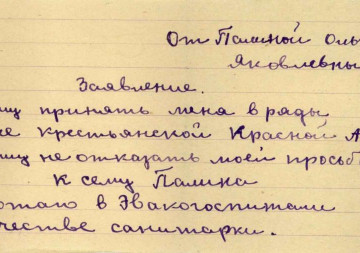 От Палиной Оль
Яковлевны
Заявление.
шу принять меня в ряды
че крестьянской Красной А
шу не отказать моей просьб
К сему Палина
ботаю в Эвакогоспитали
честве санитарки.